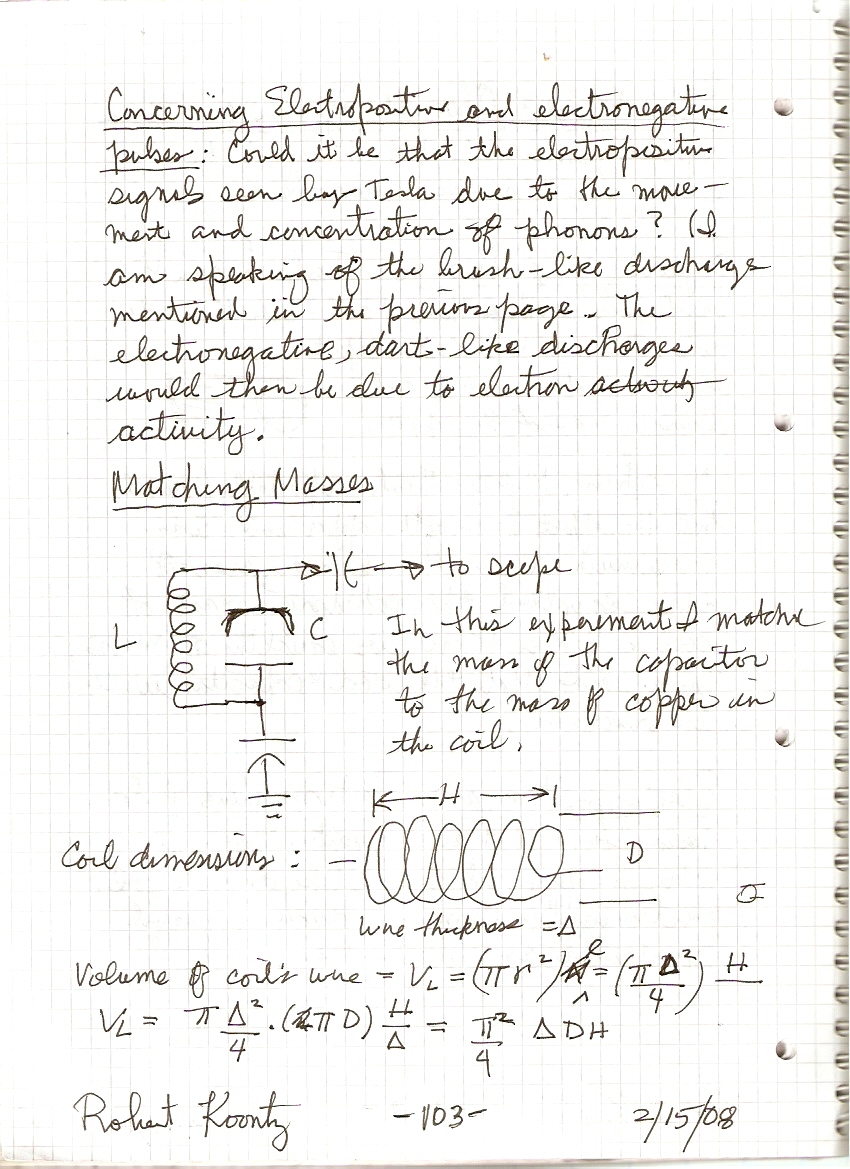 Concerning Electropositive and electronegative
pulses: Could it be that the electropositive
signals seen by Tesla due to the move-
ment and concentration of phonons? (I
am speaking of the brush-like discharge
mentioned in the previous page. The
electronegative, dart-like discharges
would then be due to electron activity
activity.
Matching Masses
to scope
L
C
In this experement I matche
the mass of the capacitor
to the mass of copper in
the coil.
H
Coil dimensions :
D
wire thickness = Δ
Volume of coil's wire = V_L = (πr²)ℓ = (πΔ²/4) H
V_L = πΔ²/4 · (πD) H/Δ = π²/4 ΔDH
Robert Koontz -103- 2/15/08